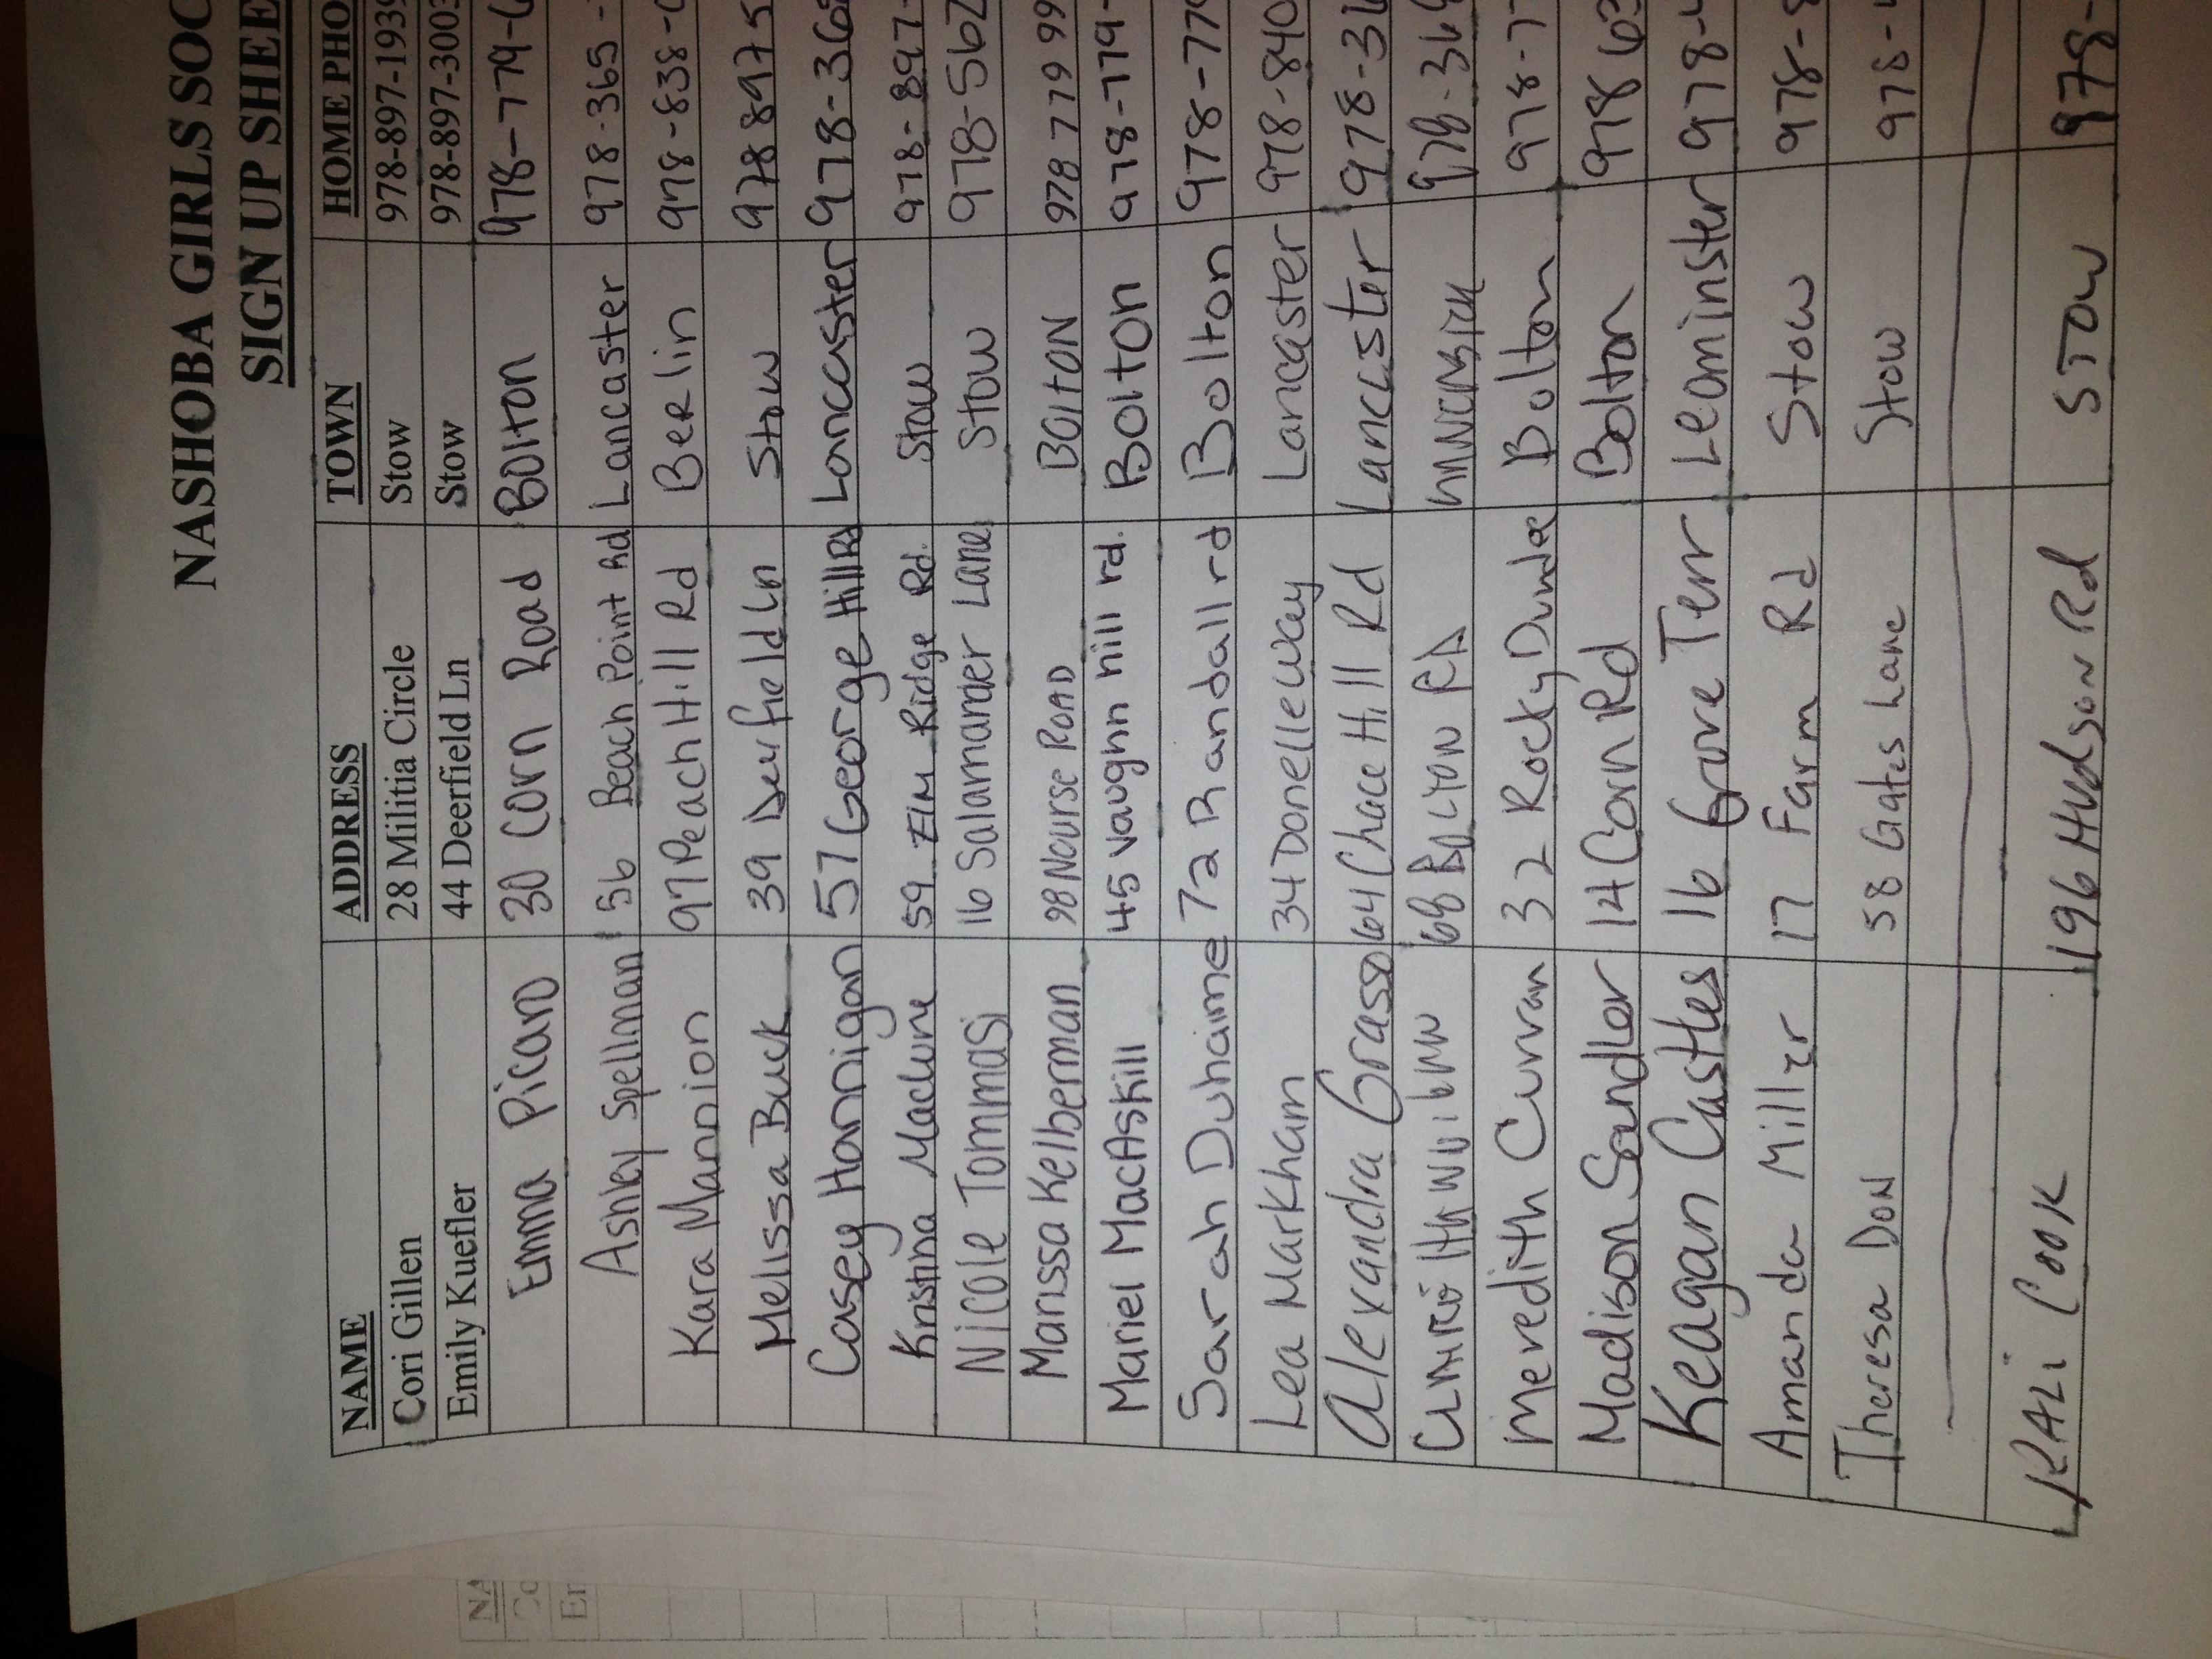 NASHOBA GIRLS SOC
SIGN UP SHEE
NAME ADDRESS TOWN HOME PHO
Cori Gillen 28 Militia Circle Stow 978-897-1939
Emily Kuefler 44 Deerfield Ln Stow 978-897-3003
Emma Picard 30 Corn Road Bolton 978-779-6
Ashley Spellman 56 Beach Point Rd Lancaster 978-365-
Kara Mannion 97 Peach Hill Rd Berlin 978-838-0
Melissa Buck 39 Deerfield Ln Stow 978 897 5
Casey Hannigan 57 George Hill Rd Lancaster 978-368
Kristina Maclure 59 Elm Ridge Rd. Stow 978-897-
Nicole Tommasi 16 Salamander Lane Stow 978-562
Marissa Kelberman 98 NOURSE ROAD BOLTON 978 779 99
Mariel MacAskill 45 vaughn hill rd. Bolton 978-779-
Sarah Duhaime 72 Randall rd Bolton 978-779
Lea Markham 34 Donelle way Lancaster 978-840
Alexandra Grasso 64 Chace Hill Rd Lancaster 978-36
68 BOLTON RD 978-368
Meredith Curran 32 Rocky Dundee Bolton 978-77
Madison Sandler 14 Corn Rd Bolton 978 63
Keagan Castles 16 Grove Terr Leominster 978-4
Amanda Miller 17 Farm Rd Stow 978-8
Theresa DON 58 Gates Lane Stow 978-
KALi COOK 196 HUDSON Rd STOW 978-
NA
Co
Em